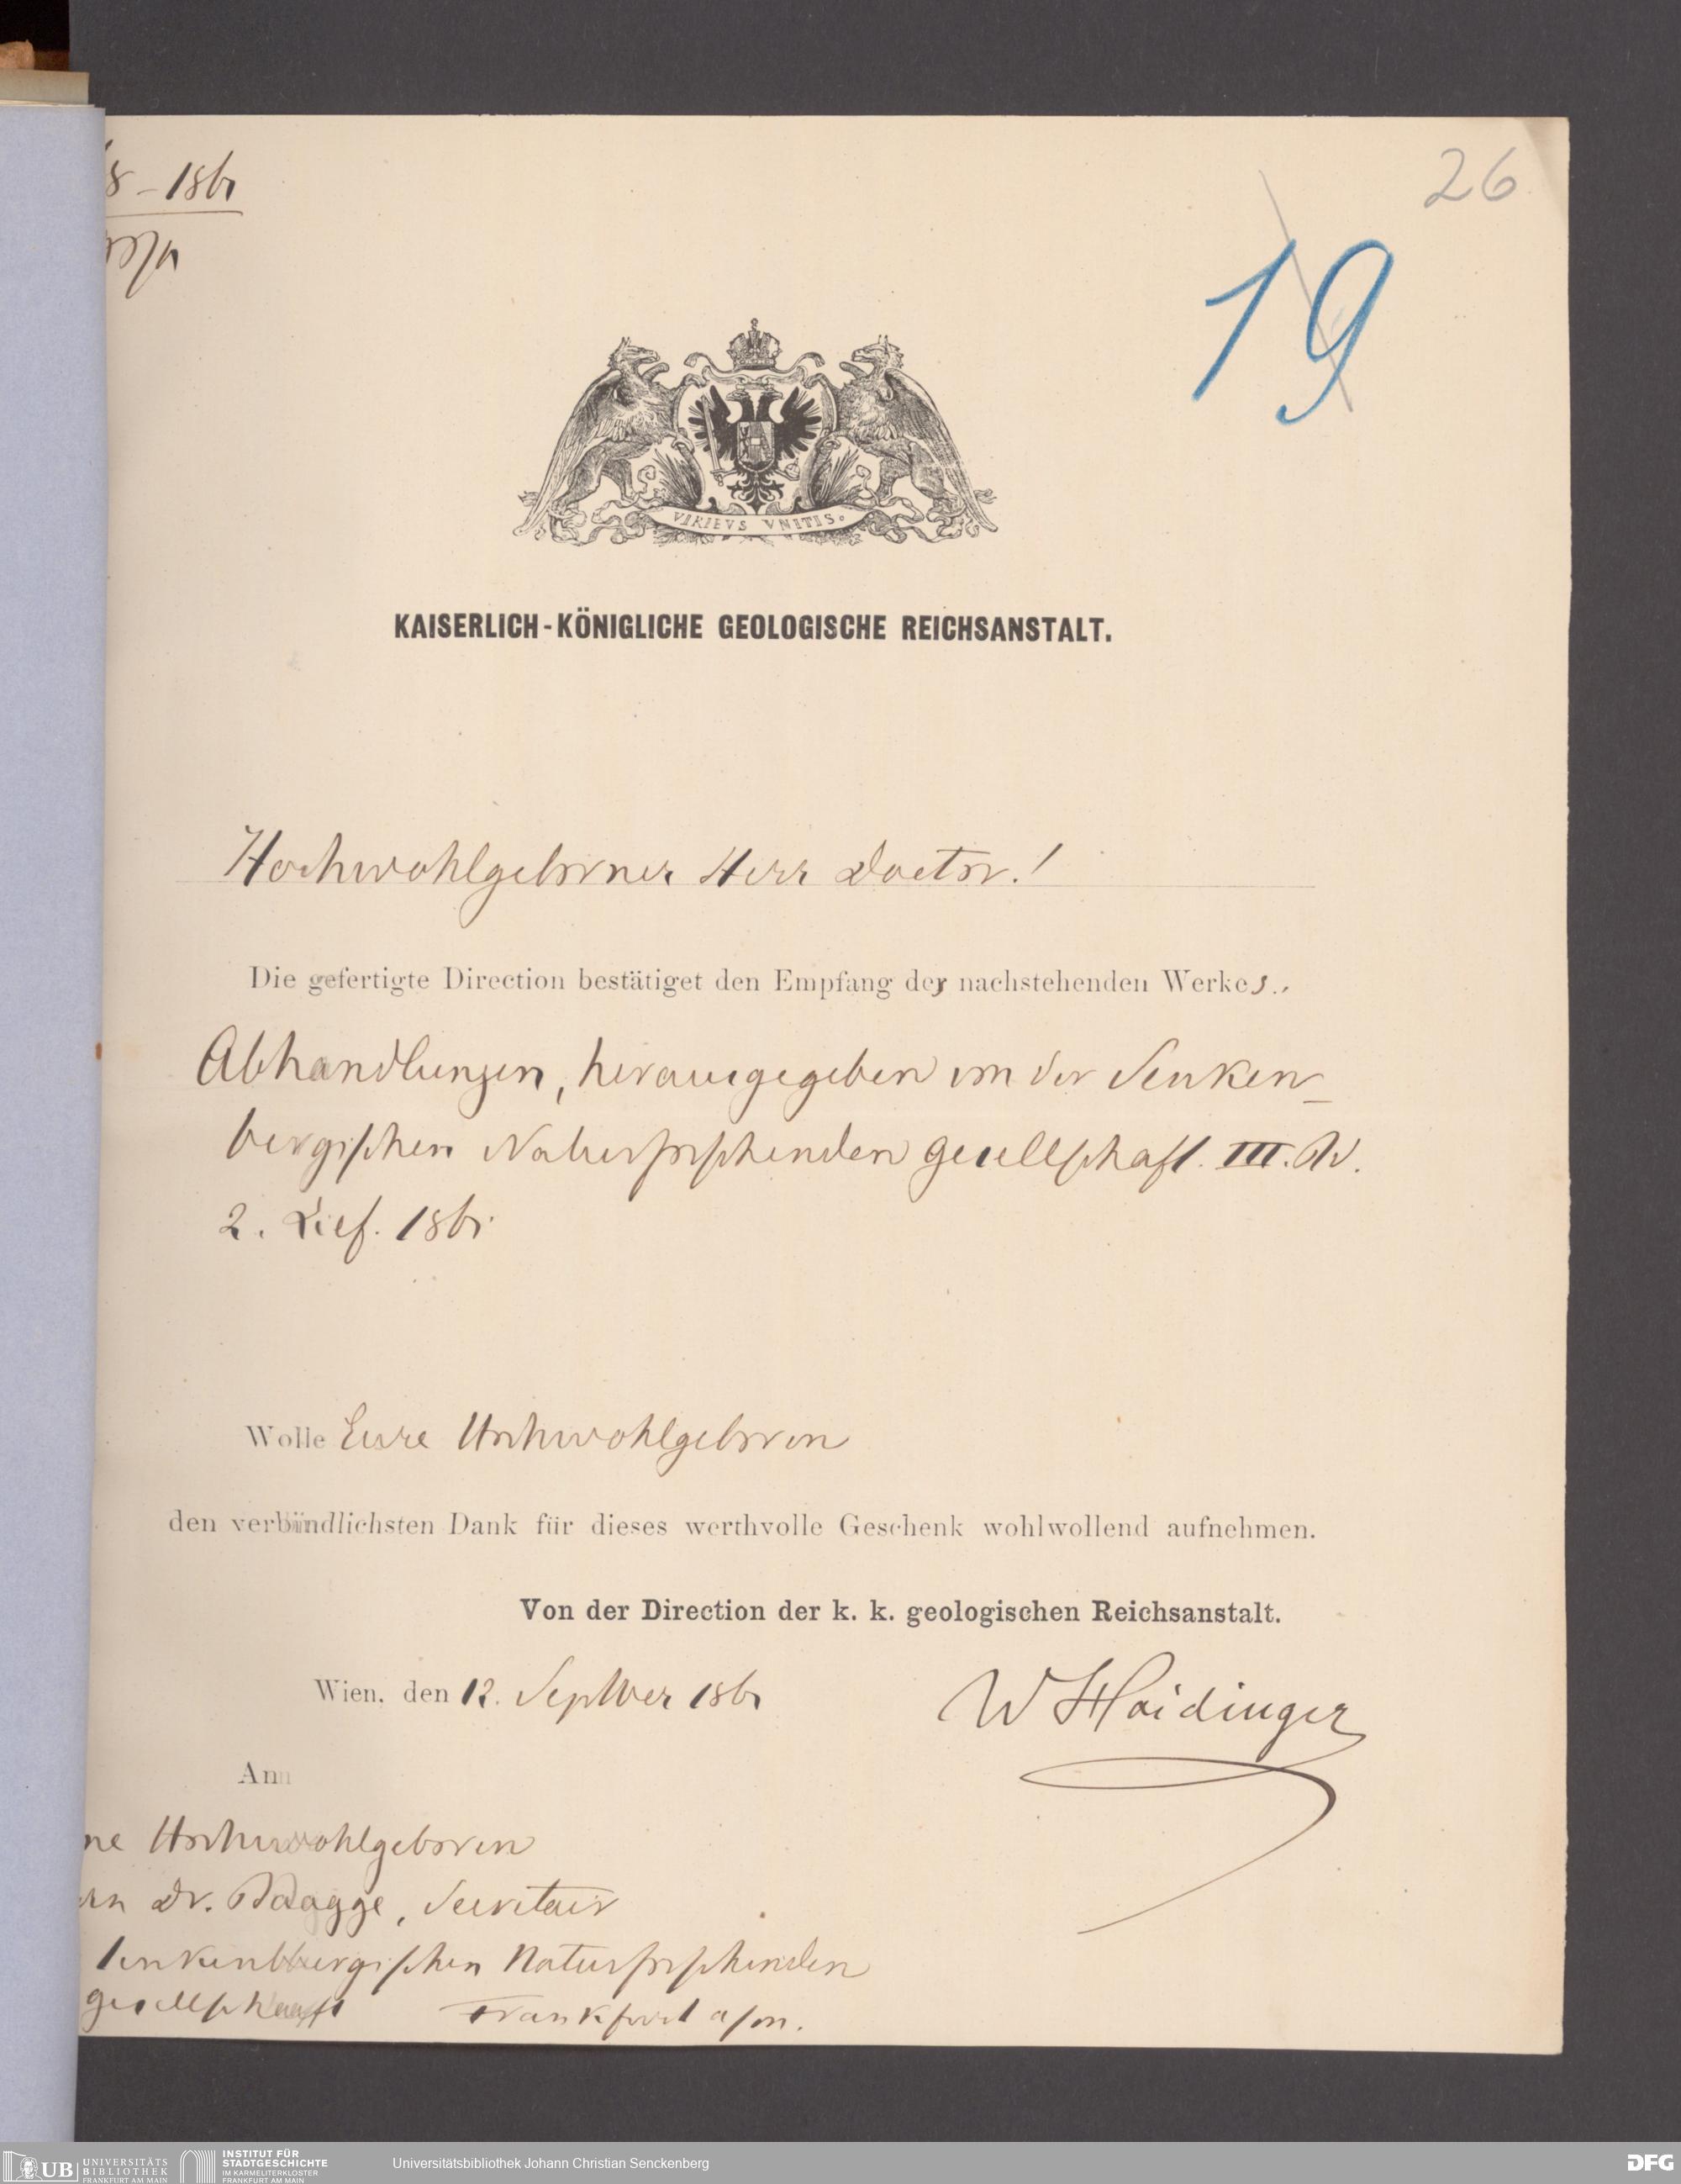 8 – 1861
26
19
VIRIBVS VNITIS.
KAISERLICH-KÖNIGLICHE GEOLOGISCHE REICHSANSTALT.
Hochwohlgeborner Herr Doctor!
Die gefertigte Direction bestätiget den Empfang des nachstehenden Werkes.
Abhandlungen, herausgegeben von der Senken-
bergischen Naturforschenden Gesellschaft. III. Bd.
2. Lief. 1861
Wolle Eure Hochwohlgeboren
den verbindlichsten Dank für dieses werthvolle Geschenk wohlwollend aufnehmen.
Von der Direction der k. k. geologischen Reichsanstalt.
Wien, den 12. September 1861
W Haidinger
An
ne Hochwohlgeboren
rn Dr. Secretair
Senkenbergischen Naturforschenden
Gesellschaft Frankfurt a/m.
UB UNIVERSITÄTS
BIBLIOTHEK
FRANKFURT AM MAIN
INSTITUT FÜR
STADTGESCHICHTE
IM KARMELITERKLOSTER
FRANKFURT AM MAIN
Universitätsbibliothek Johann Christian Senckenberg
DFG